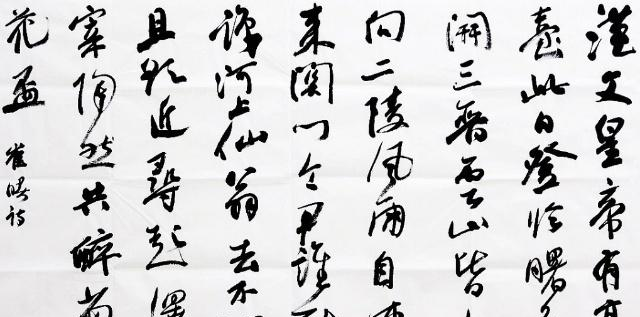 漢文皇帝有高
臺此日登臨曙色
開三晉雲山皆
向二陵風雨自東
來關門令尹誰能
識河上仙翁去不
且欲近尋彭澤
宰陶然共醉菊
花盃
崔曙詩